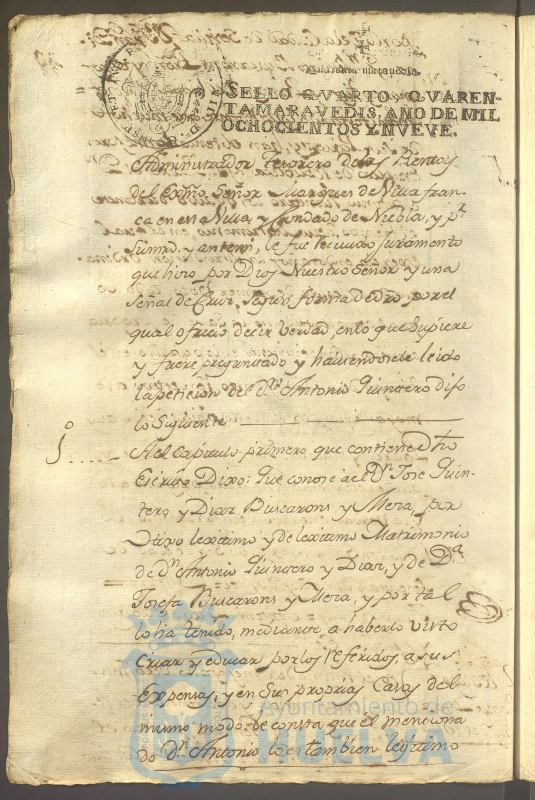 SELLO QVARTO, QVAREN-
TAMARAVEDIS, AÑO DE MIL
OCHOCIENTOS Y NVEVE.
Administrador Tesorero de las Rentas
del Exmo. Señor Marques de Villa fran-
ca en esta Villa, y Condado de Niebla, y pr.
Sumrd. y antemi, le fue recivido Juramento
que hizo por Dios Nuestro Señor y una
Señal de Cruz, segun forma de dro. por el
qual ofrecio decir verdad, en lo que supiere
y fuere preguntado y haviendosele leido
la peticion del Dn. Antonio Quintero Dijo
lo Siguiente
1º Al Capitulo primero, que contiene Dho
Escrito Dixo: Que conose a el Dn. Jose Quin-
tero y Diaz Buscarons y Mera, por
Hixo lexitimo y de lexitimo Matrimonio
de Dn. Antonio Quintero y Diaz, y de Da.
Josefa Buscarons y Mera, y por tal
lo ha tenido, mediante a haberlo visto
Criar y educar por los referidos, a sus
Expensas, y en Sus propias Casas del
mismo modo le consta que el menciona
do Dn. Antonio lo es tambien lejitimo
Ayuntamiento de
HUELVA